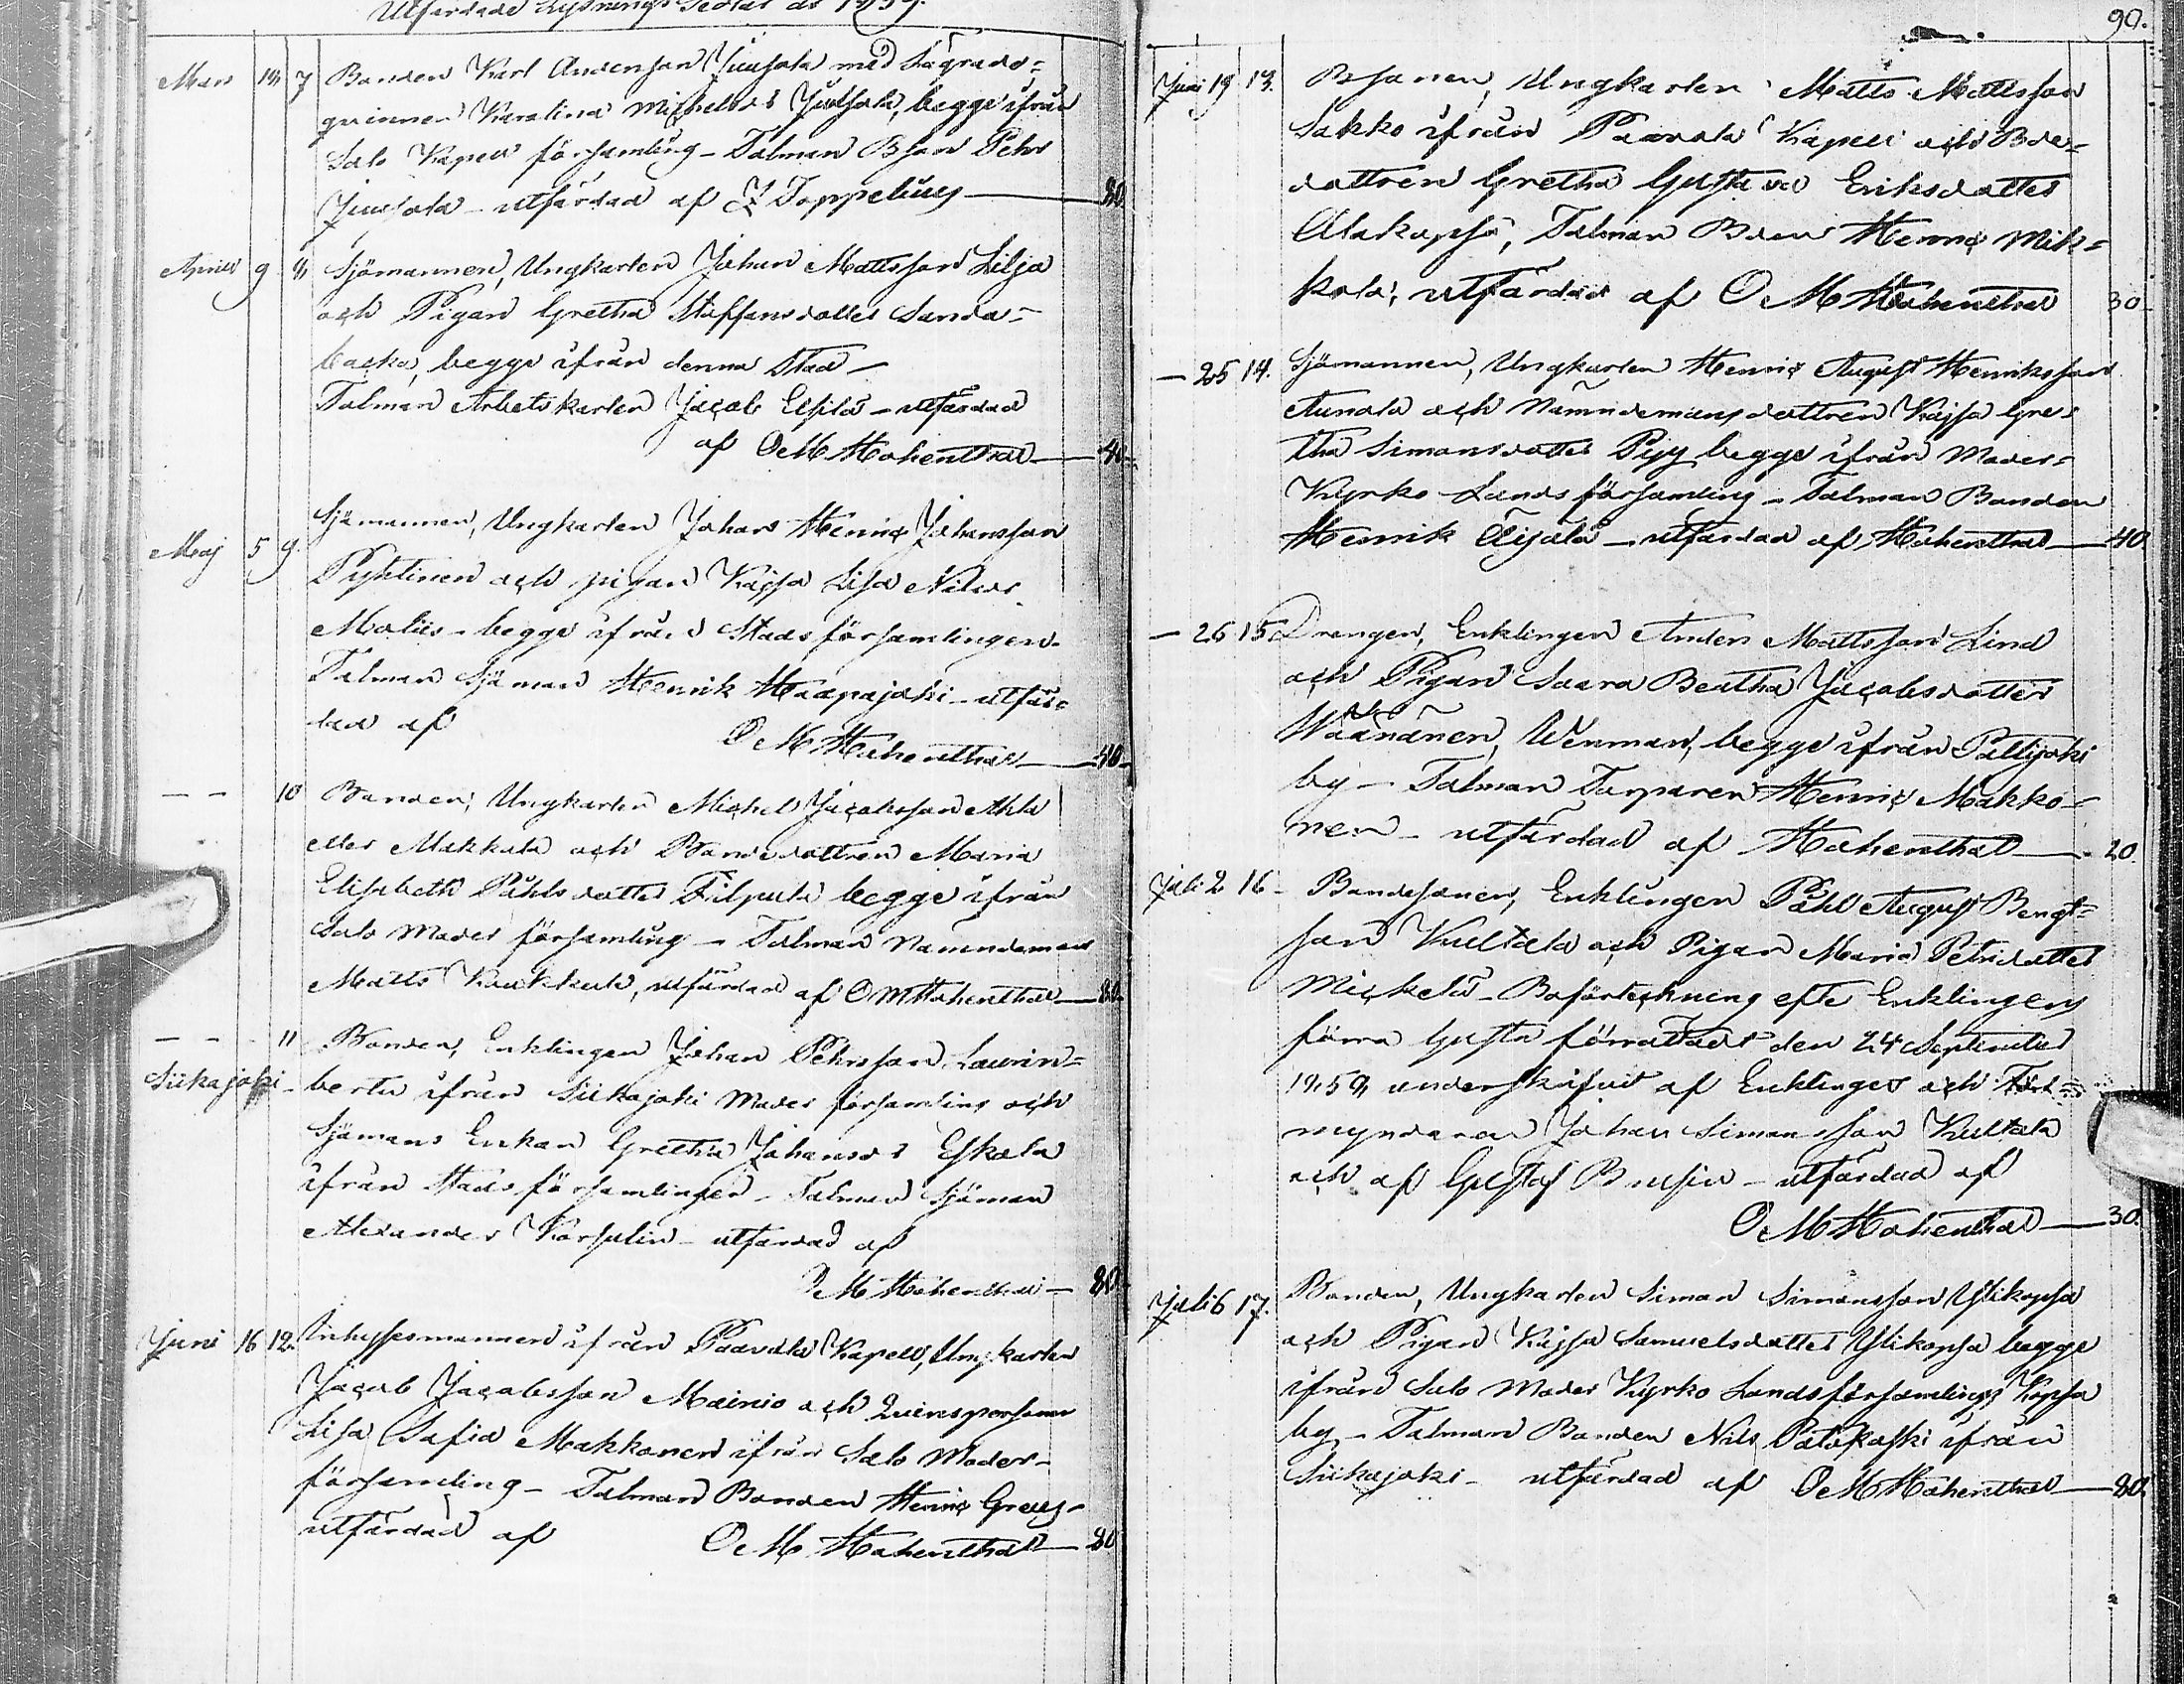 Utfärdade Lysnings Sedlar år 1859.
Mars 18 7 Bonden Karl Andersson Juusola med Lagrads=
qvinnan Karolina Michelsdr Juusola, begge ifrån
Salo Kapell församling - Talman Bson Pehr
Juusola - utfärdad af Z Toppelius — 80.
April 9 8 Sjömannen, Ungkarlen Johan Mattsson Lilja
och Pigan Gretha Staffansdotter Sanda=
backa, begge ifrån denna Stad -
Talman Arbetskarlen Jacob Elfilä - utfärdad
af O M Hohenthal — 40.
Maj 5 9. Sjömannen, Ungkarlen Johan Henric Johansson
Pyhtinen och pigan Kajsa Lisa Nilsdr
Moliis - begge ifrån Stadsförsamlingen.
Talman Sjöman Henrik Haapajoki - utfär=
dad af O M Hohenthal — 40.
— — 10 Bonden, Ungkarlen Michel Jacobsson Ahla
eller Makkala och Bondedottren Maria
Elisabeth Påhlsdotter Filpula begge ifrån
Salo Moder församling - Talman Nämndeman
Matts Kuukkula, utfärdad af O M Hohenthal — 80.
— — 11 Bonden, Enklingen Johan Pehrsson Laurin=
Siikajoki - bertu ifrån Siikajoki Moder församling och
Sjömans Enkan Gretha Johansdr Eskola
ifrån Stads församlingen - Talman Sjöman
Alexander Korsulin - utfärdad af
O M Hohenthal — 80.
Juni 16 12. Inhyssesmannen ifrån Paavola Kapell, Ungkarlen
Jacob Jacobsson Mainio och Qvinspersonen
Lisa Sofia Makkonen ifrån Salo Moder-
församling - Talman Bonden Henric Greus -
utfärdad af O M Hohenthal — 20
90.
Juni 19 13. Bsonen, Ungkarlen Matts Mattsson
Sakko ifrån Paavola Kapell och Bde=
dottren Gretha Gustava Eriksdotter
Alakopsa, Talman Bden Henric Mik=
kola, utfärdad af O M Hohenthal 30.
— 25 14. Sjömannen, Ungkarlen Henric August Henriksson
Aunola och Nämndemansdottren Kajsa Gre=
tha Simonsdotter Pyy begge ifrån Moder=
Kyrko-Lands församling - Talman Bonden
Henrik Äijälä - utfärdad af Hohenthal — 40
— 26 15. Drengen, Enklingen Anders Mattsson Lind
och Pigan Saara Beatha Jacobsdotter
Wäänänen, Wenman, begge ifrån Pattijoki
by - Talman Torparen Henric Makko=
nen - utfärdad af Hohenthal — 20.
Juli 2 16 - Bondesonen, Enklingen Påhl August Bengt=
son Kultala och Pigan Maria Petrsdotter
Mickelä - Boförteckning efte Enklingens
förra hustru förrättad den 24 September
1858 underskrifvit af Enklingen och För=
myndaren Johan Simonsson Kultala
och af Gustaf Brusin - utfärdad af
O M Hohenthal — 30.
Juli 6 17. Bonden, Ungkarlen Simon Simonsson Ylikopsa
och Pigan Kajsa Samuelsdotter Ylikopsa begge
ifrån Salo Moder Kyrko Landsförsamlings Kopsa
by - Talman Bonden Nils Palokoski ifrån
Siikajoki - utfärdad af O M Hohenthal — 80.